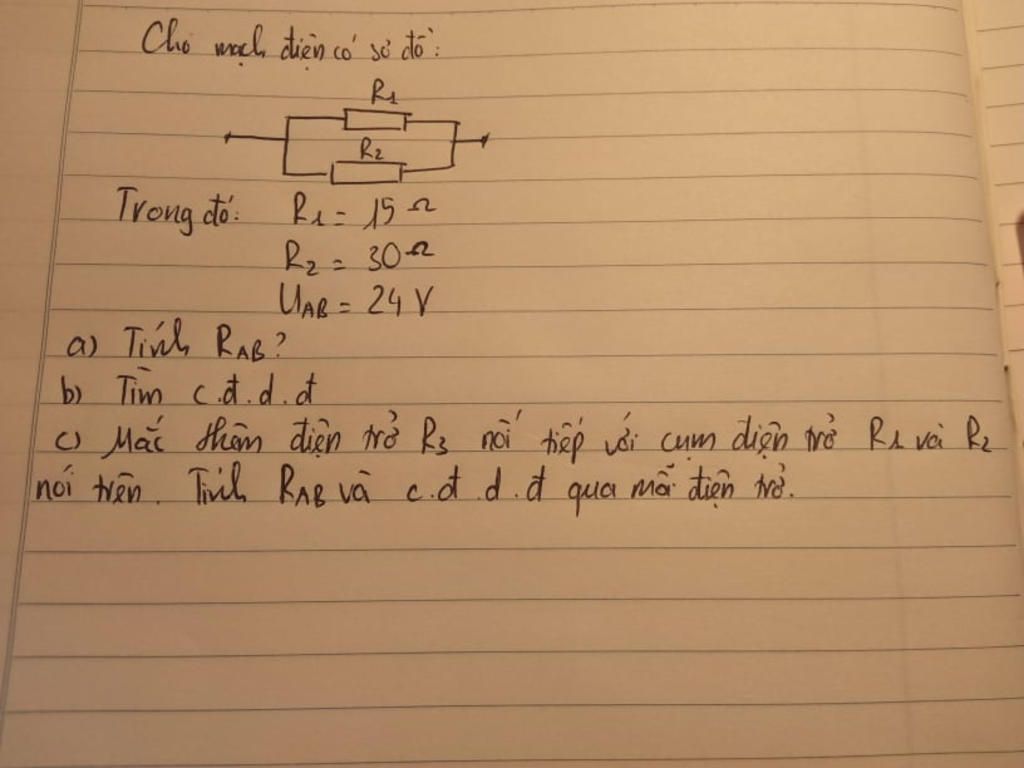 Cho mạch điện có sơ đồ:
R1
R2
Trong đó: R1 = 15 Ω
R2 = 30 Ω
UAB = 24 V
a) Tính RAB?
b) Tìm c.đ.d.đ
c) Mắc thêm điện trở R3 nối tiếp với cụm điện trở R1 và R2
nói trên. Tính RAB và c.đ.d.đ qua mỗi điện trở.